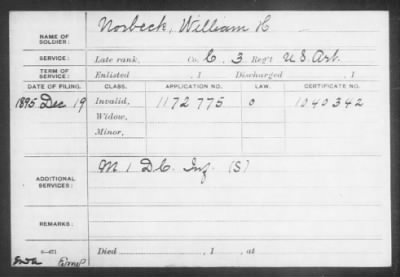 NAME OF SOLDIER: Norbeck, William H
SERVICE: Late rank, Co. C. 3 Reg't U S Art.
TERM OF SERVICE: Enlisted , 1 Discharged , 1
DATE OF FILING. CLASS. APPLICATION NO. LAW. CERTIFICATE NO.
1895 Dec 19 Invalid, 1172775 0 1040342
Widow,
Minor,
ADDITIONAL SERVICES: M 1 D.C. Inf. (S)
REMARKS:
Died , 1 , at